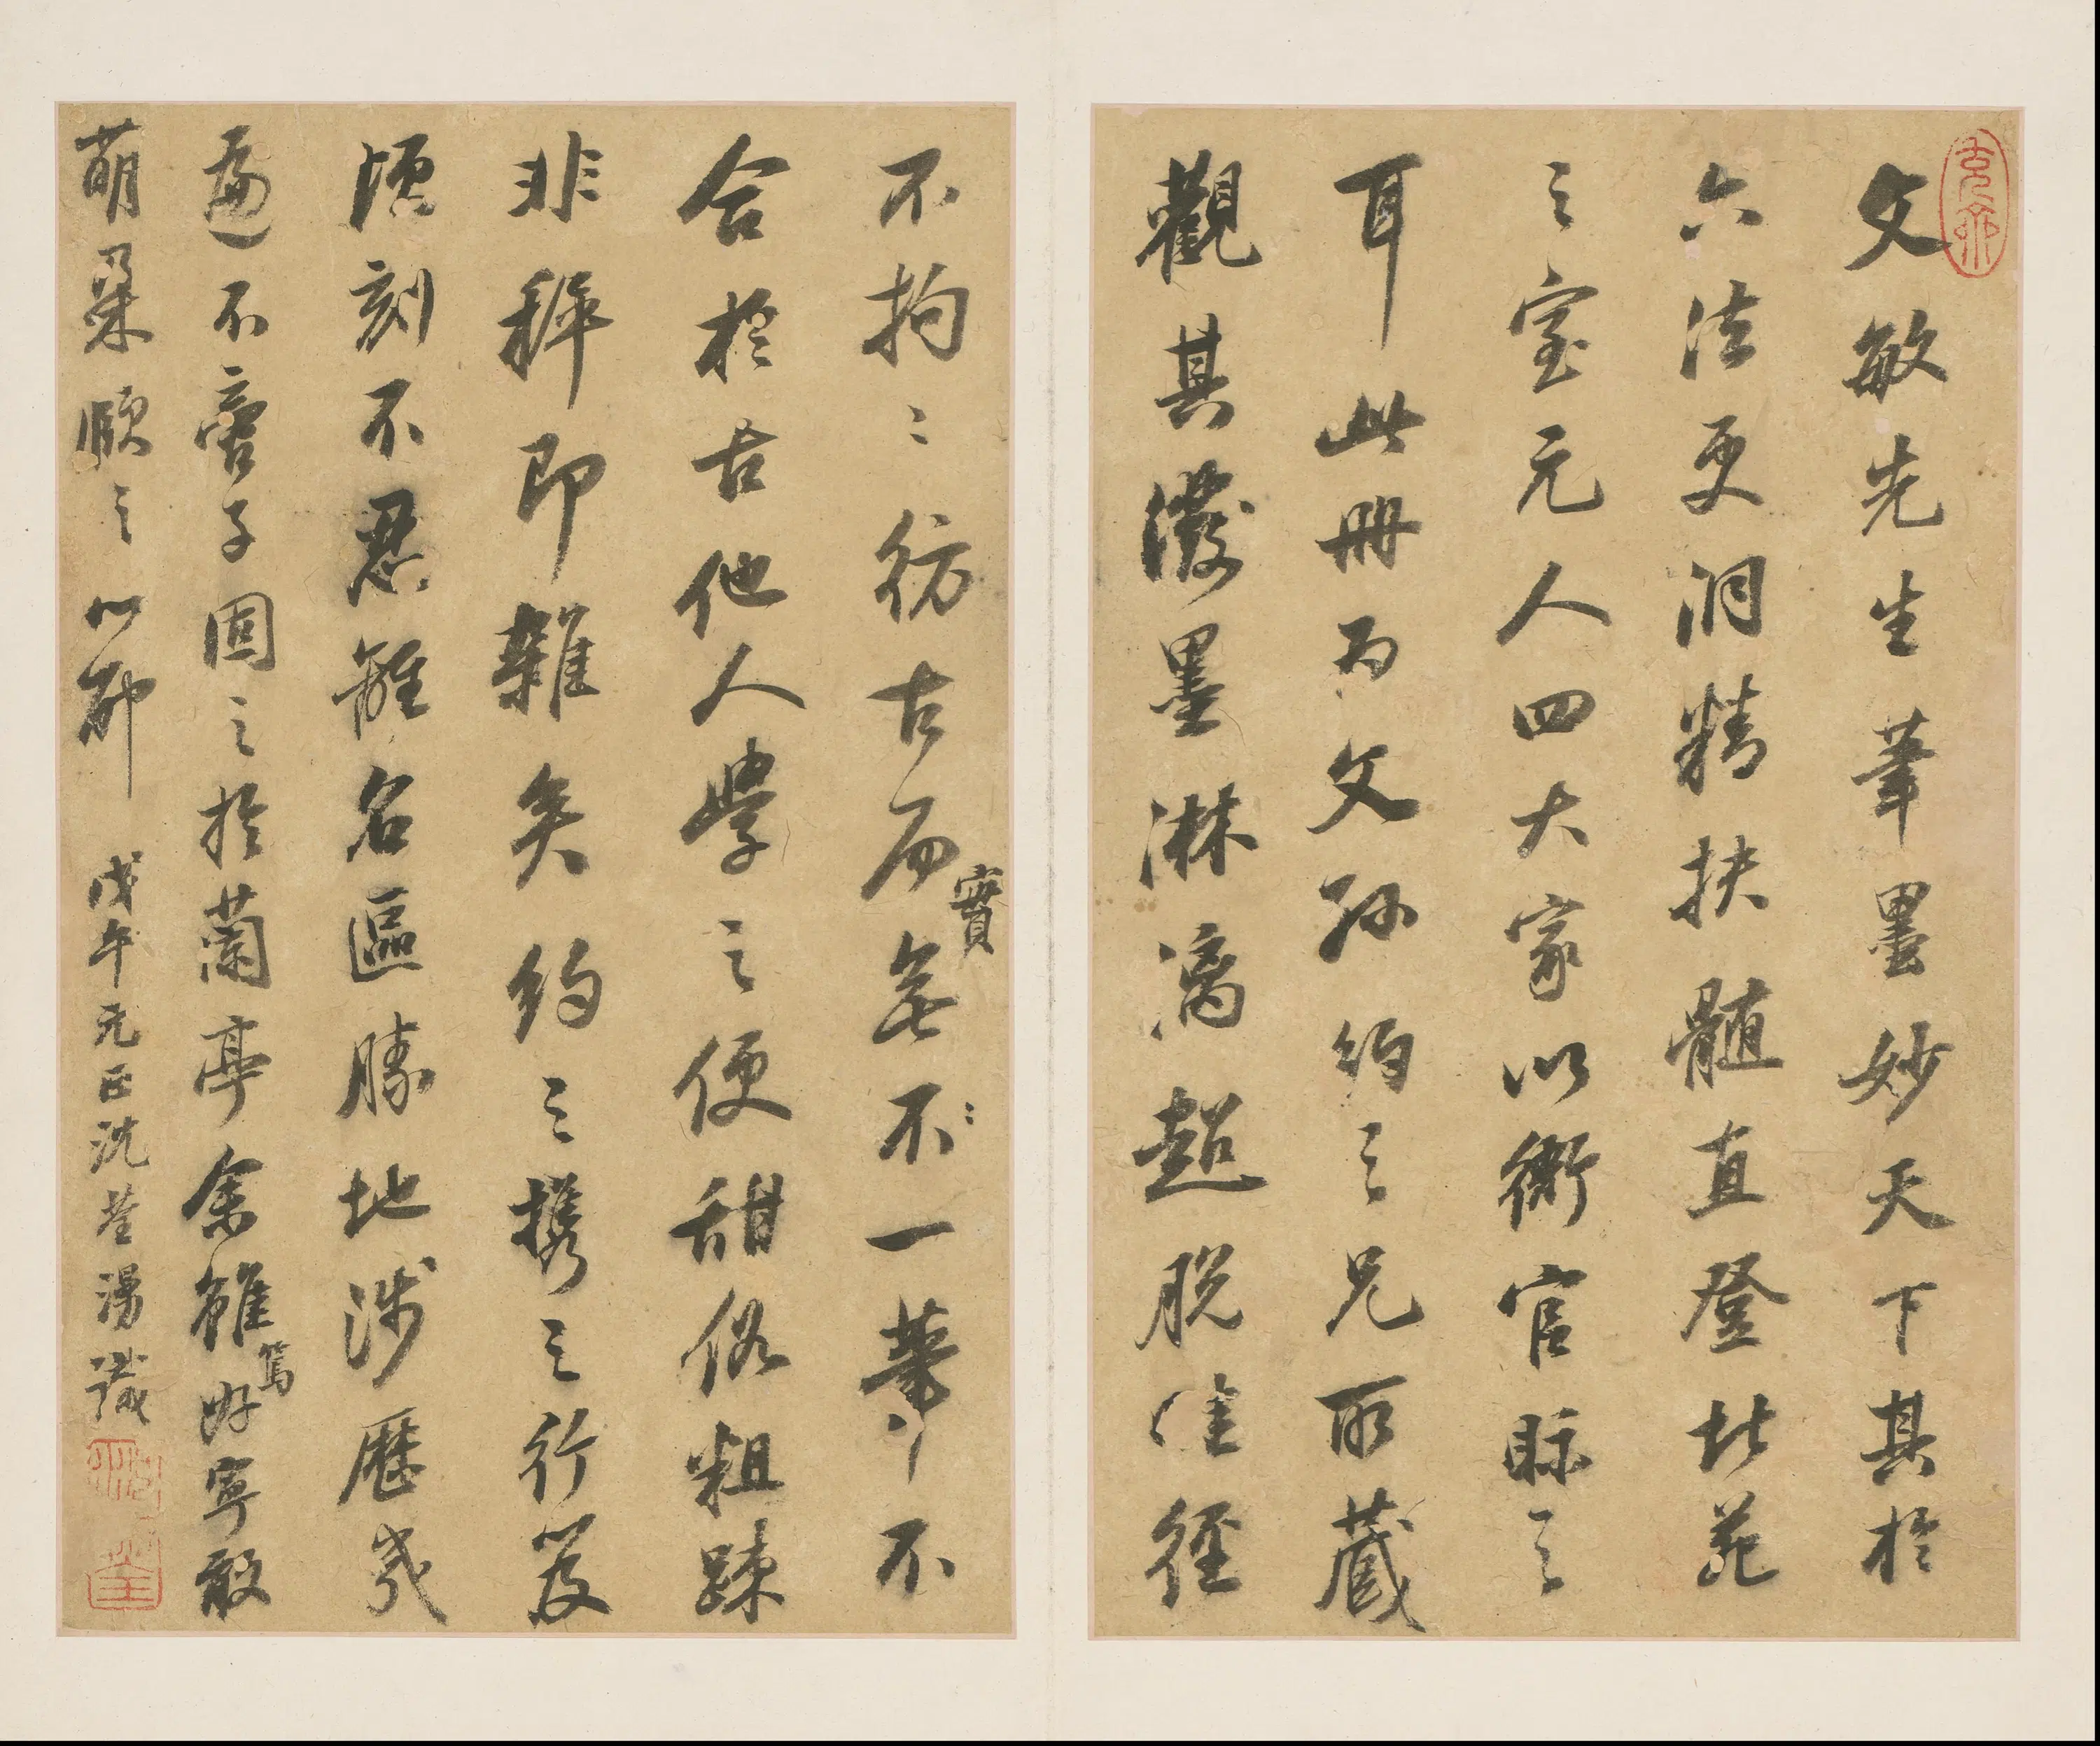 文敏先生筆墨妙天下其於
六法更洞精抉髓直登北苑
之室元人四大家以衙官眎之
耳此冊為文孫約之兄所藏
觀其潑墨淋漓超脫畦徑
不拘〻彷古而實無不一筆不
合於古他人學之便甜俗粗踈
非稺即雜矣約之攜之行笈
頃刻不忍離名區勝地涉歷幾
遍不啻子固之於蘭亭余雖篤好寧敢
萌朶頤之心耶 戊午元旦沈荃漫識